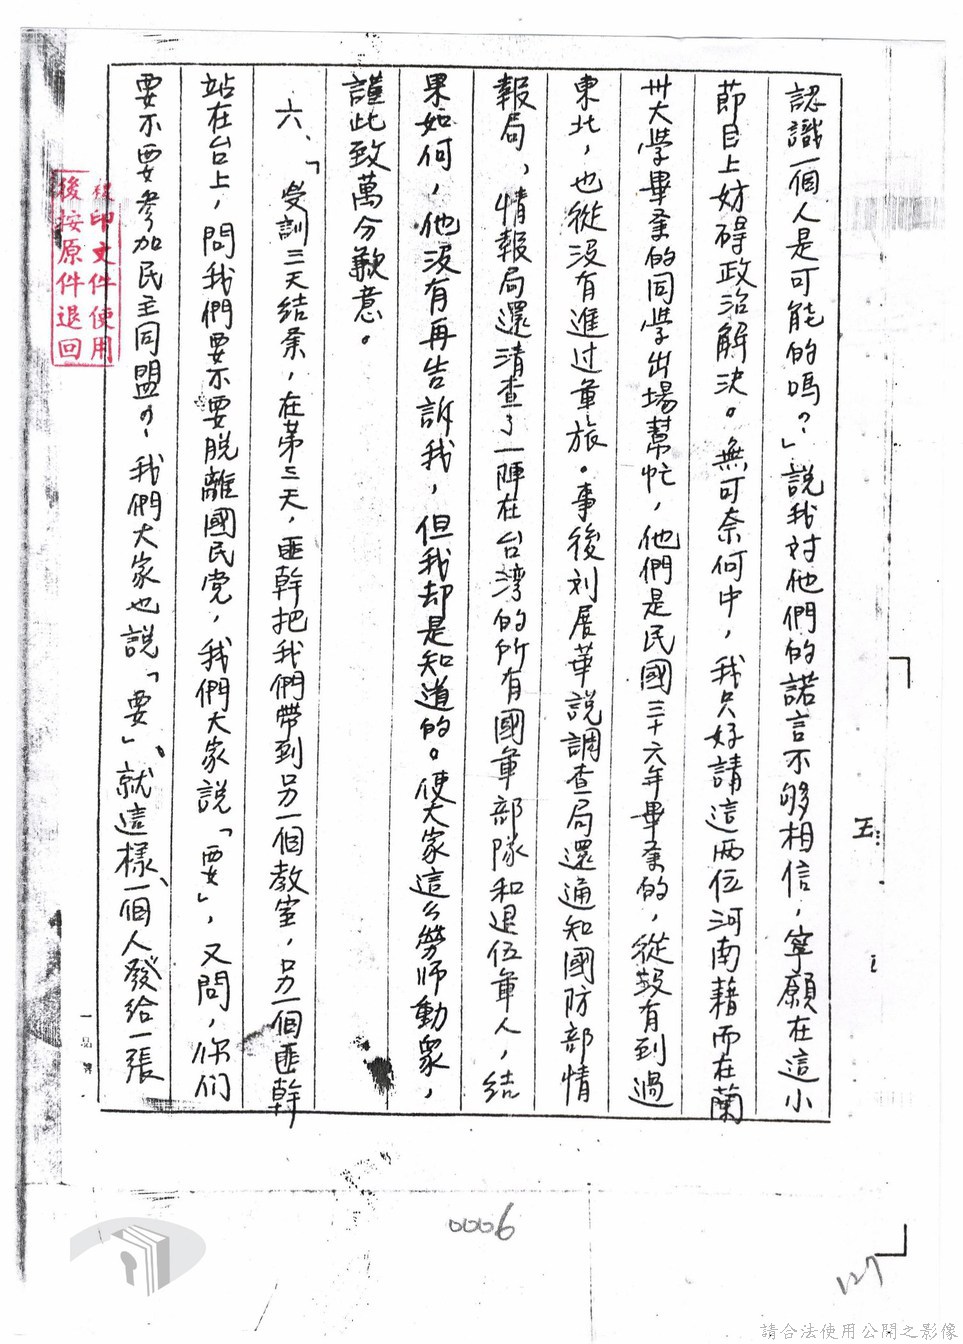 認識一個人是可能的嗎？」說我对他們的諾言不够相信，寧願在這小
節目上妨碍政治解決。無可奈何中，我只好請這两位河南藉而在蘭
卅大學畢業的同學出場幫忙，他們是民國三十六年畢業的，從没有到過
東北，也從没有進过軍旅。事後刘展華説調查局還通知國防部情
報局，情報局還清查了一陣在台湾的所有國軍部隊和退伍軍人，結
果如何，他没有再告訴我，但我却是知道的。使大家這么勞师動衆，
謹此致萬分歉意。
六、「受訓三天结業，在第三天，匪幹把我們帶到另一個教室，另一個匪幹
站在台上，問我們要不要脱離國民党，我們大家説「要」，又問，你们
要不要参加民主同盟？，我們大家也説「要」、就這樣、一個人發给一張
印文件使用
後按原件退回
五：
0006
127
請合法使用公開之影像